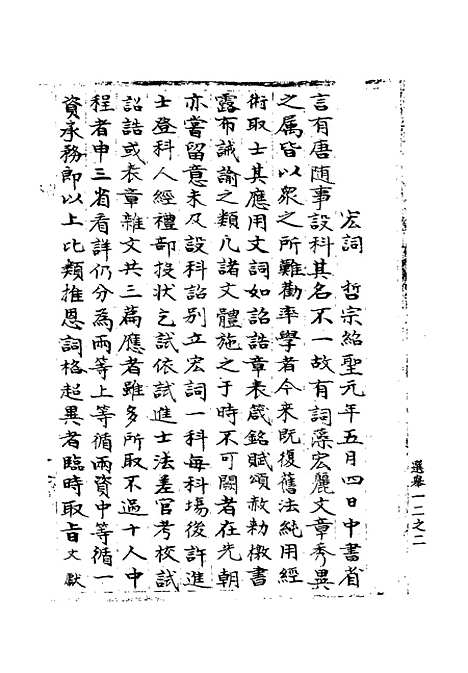 選舉一二之二
宏詞 哲宗紹聖元年五月四日中書省
言有唐随事設科其名不一故有詞藻宏麗文章秀異
之属皆以衆之所難勸率學者今來既復舊法純用經
術取士其應用文詞如詔誥章表箴銘賦頌赦勅檄書
露布誡諭之類凡諸文體施之于時不可闕者在先朝
亦嘗留意未及設科詔別立宏詞一科每科場後許進
士登科人經禮部投狀乞試依試進士法差官考校試
詔誥或表章雜文共三篇應者雖多所取不過十人中
程者申三省看詳仍分為兩等上等循兩資中等循一
資承務郎以上比類推恩詞格超異者臨時取旨文獻